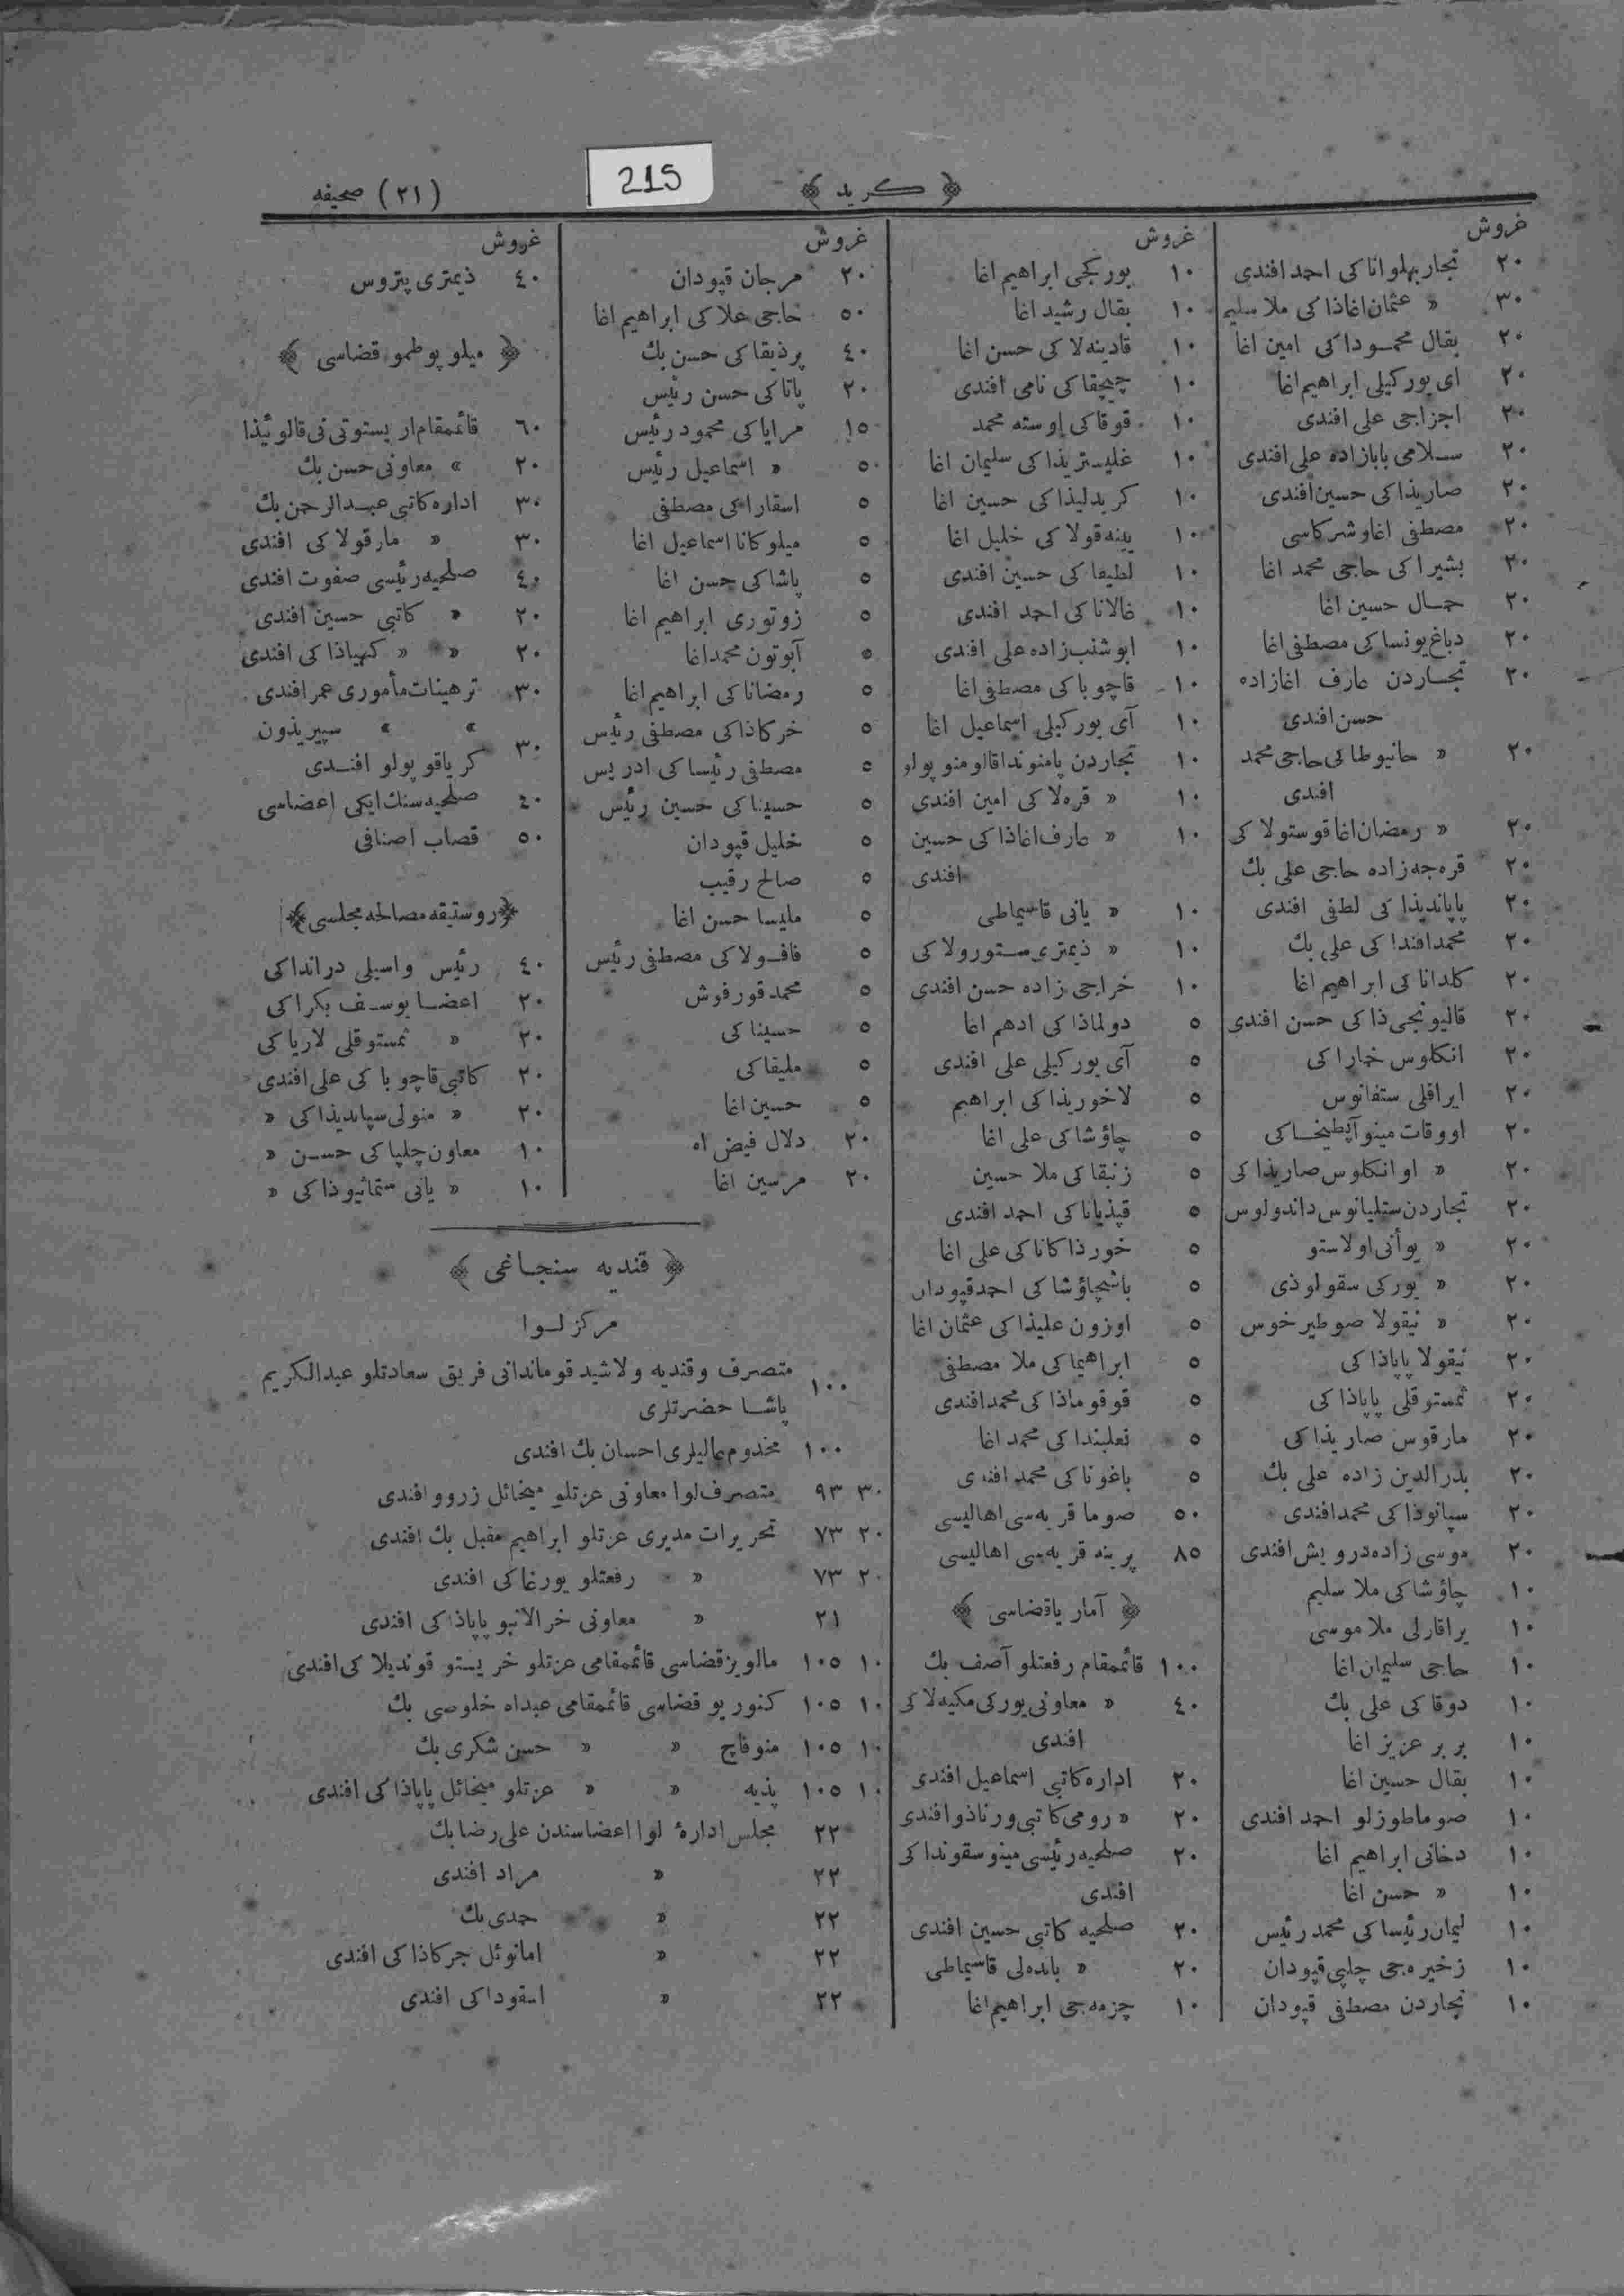 ﴿ كريد ﴾
215
(٢١) صحيفه
غروش
٢٠ تجار بهلوانا كى احمد افندى
٣٠ « عثمان اغاذا كى ملا سليم
٢٠ بقال محمودا كى امين اغا
٢٠ اى يوركيلى ابراهيم اغا
٢٠ اجزاجى على افندى
٢٠ سلامى بابازاده على افندى
٢٠ صاريذا كى حسين افندى
٢٠ مصطفى اغا و شركاسى
٢٠ بشيرا كى حاجى محمد اغا
٢٠ حمال حسين اغا
٢٠ دباغ يونسا كى مصطفى اغا
٢٠ تجاردن عارف اغازاده
حسن افندى
٢٠ « حانيوطا كى حاجى محمد
افندى
٢٠ « رمضان اغا قوستولا كى
٢٠ قره جه زاده حاجى على بك
٢٠ پاپاديذا كى لطفى افندى
٢٠ محمد افندا كى على بك
٢٠ كلدانا كى ابراهيم اغا
٢٠ قاليونجى ذا كى حسن افندى
٢٠ انكلوس خمارا كى
٢٠ ايراقلى ستفانوس
٢٠ اووقات مينو
٢٠ « او انكلوس صاريذا كى
٢٠ تجاردن ستليانوس داندولوس
٢٠ « يوآنى اولاستو
٢٠ « يوركى سقولوذى
٢٠ « نيقولا صوطيرخوس
٢٠ نيقولا پاپاذا كى
٢٠ ثمستوقلى پاپاذا كى
٢٠ مارقوس صاريذا كى
٢٠ بدرالدين زاده على بك
٢٠ سپانوذا كى محمد افندى
٢٠ موسى زاده درويش افندى
١٠ چاؤشا كى ملا سليم
١٠ براقارلى ملا موسى
١٠ حاجى سليمان اغا
١٠ دوقا كى على بك
١٠ بربر عزيز اغا
١٠ بقال حسين اغا
١٠ صوماطوزلو احمد افندى
١٠ دخانى ابراهيم اغا
١٠ « حسن اغا
١٠ ليمان رئيسا كى محمد رئيس
١٠ زخيره جى چلپى قپودان
١٠ تجاردن مصطفى قپودان
غروش
١٠ يوركجى ابراهيم اغا
١٠ بقال رشيد اغا
١٠ قادينه لا كى حسن اغا
١٠ چيچقا كى نامى افندى
١٠ قوقا كى اوسته محمد
١٠ غليستريذا كى سليمان اغا
١٠ كريدليذا كى حسين اغا
١٠ يينه قولا كى خليل اغا
١٠ لطيفا كى حسين افندى
١٠ غالانا كى احمد افندى
١٠ ابوشنب زاده على افندى
١٠ قاچوبا كى مصطفى اغا
١٠ آى يوركيلى اسماعيل اغا
١٠ تجاردن پامنوندا قالومنوپولو
١٠ « قره لا كى امين افندى
١٠ « عارف اغاذا كى حسين
افندى
١٠ « يانى قاسيماطى
١٠ « ذيمترى ستورولا كى
١٠ خراجى زاده حسن افندى
٥ دولماذا كى ادهم اغا
٥ آى يوركيلى على افندى
٥ لاخوريذا كى ابراهيم
٥ چاؤشا كى على اغا
٥ زنبقا كى ملا حسين
٥ قپذيانا كى احمد افندى
٥ خورذا كانا كى على اغا
٥ باشچاؤشا كى احمد قپودان
٥ اوزون عليذا كى عثمان اغا
٥ ابراهيما كى ملا مصطفى
٥ قوقوماذا كى محمد افندى
٥ نعلبندا كى محمد اغا
٥ باغونا كى محمد افندى
٥٠ صوما قريه سى اهاليسى
٨٥ پرينه قريه سى اهاليسى
﴿ آمار ياقضاسى ﴾
١٠٠ قائممقام رفعتلو آصف بك
٤٠ « معاونى يوركى مكيه لا كى
افندى
٢٠ اداره كاتبى اسماعيل افندى
٢٠ « رومى كاتبى ورناذو افندى
٢٠ صلحيه رئيسى مينو سقوندا كى
افندى
٢٠ صلحيه كاتبى حسين افندى
٢٠ « بانده لى قاسيماطى
١٠ چزمه جى ابراهيم اغا
غروش
٢٠ مرجان قپودان
٥٠ حاجى علا كى ابراهيم اغا
٤٠ پرذيقا كى حسن بك
٢٠ پاتا كى حسن رئيس
١٥ مرايا كى محمود رئيس
٥ « اسماعيل رئيس
٥ اسقارا كى مصطفى
٥ ميلوكانا اسماعيل اغا
٥ پاشا كى حسن اغا
٥ زوتورى ابراهيم اغا
٥ آبوتون محمد اغا
٥ رمضانا كى ابراهيم اغا
٥ خركاذا كى مصطفى رئيس
٥ مصطفى رئيسا كى ادريس
٥ حسينا كى حسين رئيس
٥ خليل قپودان
٥ صالح رقيب
٥ مليسا حسن اغا
٥ فافولا كى مصطفى رئيس
٥ محمد قورفوش
٥ حسينا كى
٥ مليقا كى
٥ حسين اغا
٢٠ دلال فيض اه
٢٠ مرسين اغا
غروش
٤٠ ذيمترى پتروس
﴿ ميلوپوطمو قضاسى ﴾
٦٠ قائممقام اريستوتى نى قالوئيذا
٢٠ » معاونى حسن بك
٣٠ اداره كاتبى عبدالرحمن بك
٣٠ « مارقولا كى افندى
٤٠ صلحيه رئيسى صفوت افندى
٢٠ « كاتبى حسين افندى
٢٠ « « كهياذا كى افندى
٣٠ ترهينات مأمورى عمر افندى
٣٠ » » سپيريذون
كرياقوپولو افندى
٤٠ صلحيه سنك ايكى اعضاسى
٥٠ قصاب اصنافى
﴿ روستيقه مصالحه مجلسى ﴾
٤٠ رئيس واسيلى درانداكى
٢٠ اعضا يوسف بكرا كى
٢٠ « ثمستوقلى لاريا كى
٢٠ كاتبى قاچوبا كى على افندى
٢٠ « منولى سپاديذا كى «
١٠ معاون چلپا كى حسن «
١٠ « يانى ستمانيوذا كى «
﴿ قنديه سنجاغى ﴾
مركز لوا
١٠٠ متصرف وقنديه ولاشيد قوماندانى فريق سعادتلو عبدالكريم
پاشا حضرتلرى
١٠٠ مخدوم عاليلرى احسان بك افندى
٣٠ ٩٣ متصرف لوا معاونى عزتلو ميخائل زروو افندى
٢٠ ٧٣ تحريرات مديرى عزتلو ابراهيم مقبل بك افندى
٢٠ ٧٣ « رفعتلو يورغا كى افندى
٢١ « معاونى خرالانبو پاپاذا كى افندى
١٠ ١٠٥ مالويز قضاسى قائممقامى عزتلو خريستو قونديلا كى افندى
١٠ ١٠٥ كنوريو قضاسى قائممقامى عبداه خلوصى بك
١٠ ١٠٥ منوفاچ « « حسن شكرى بك
١٠ ١٠٥ پذيه « « عزتلو ميخائل پاپاذا كى افندى
٢٢ مجلس ادارۀ لوا اعضاسندن على رضا بك
٢٢ « مراد افندى
٢٢ « حمدى بك
٢٢ « امانوئل جركاذا كى افندى
٢٢ « اسقودا كى افندى